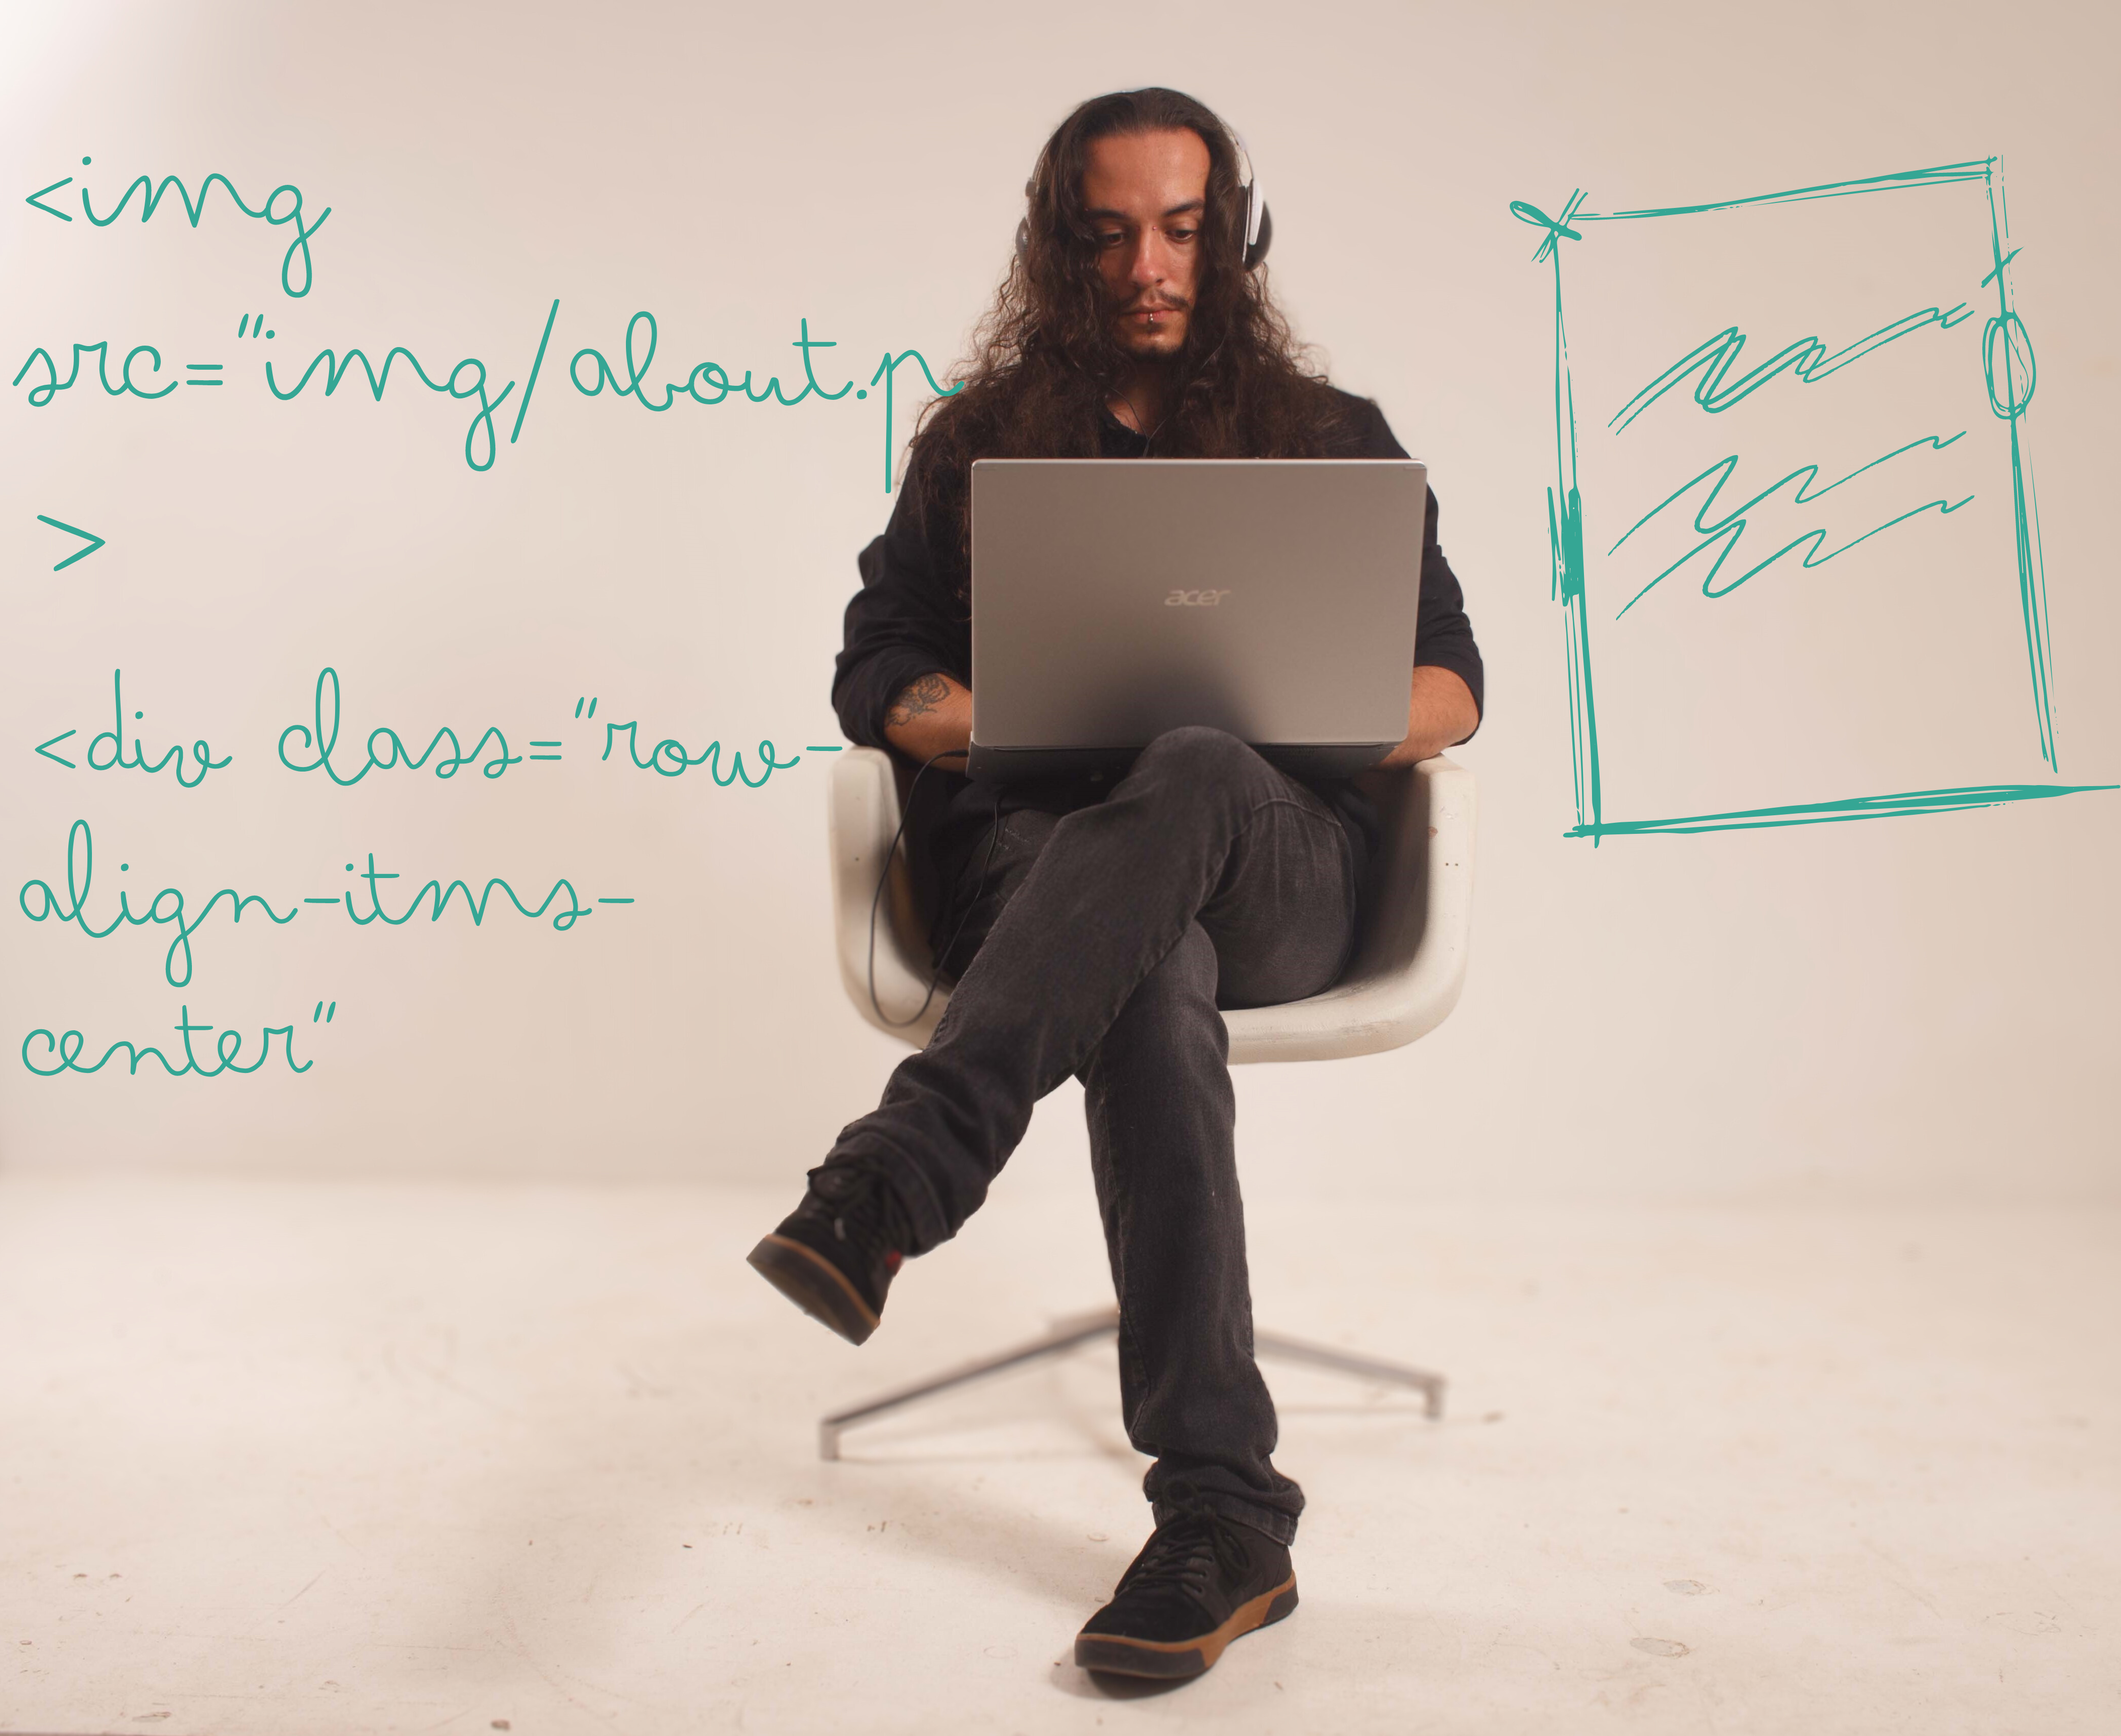 <img
src="img/about.p
>
<div class="row-
align-itms-
center"
acer